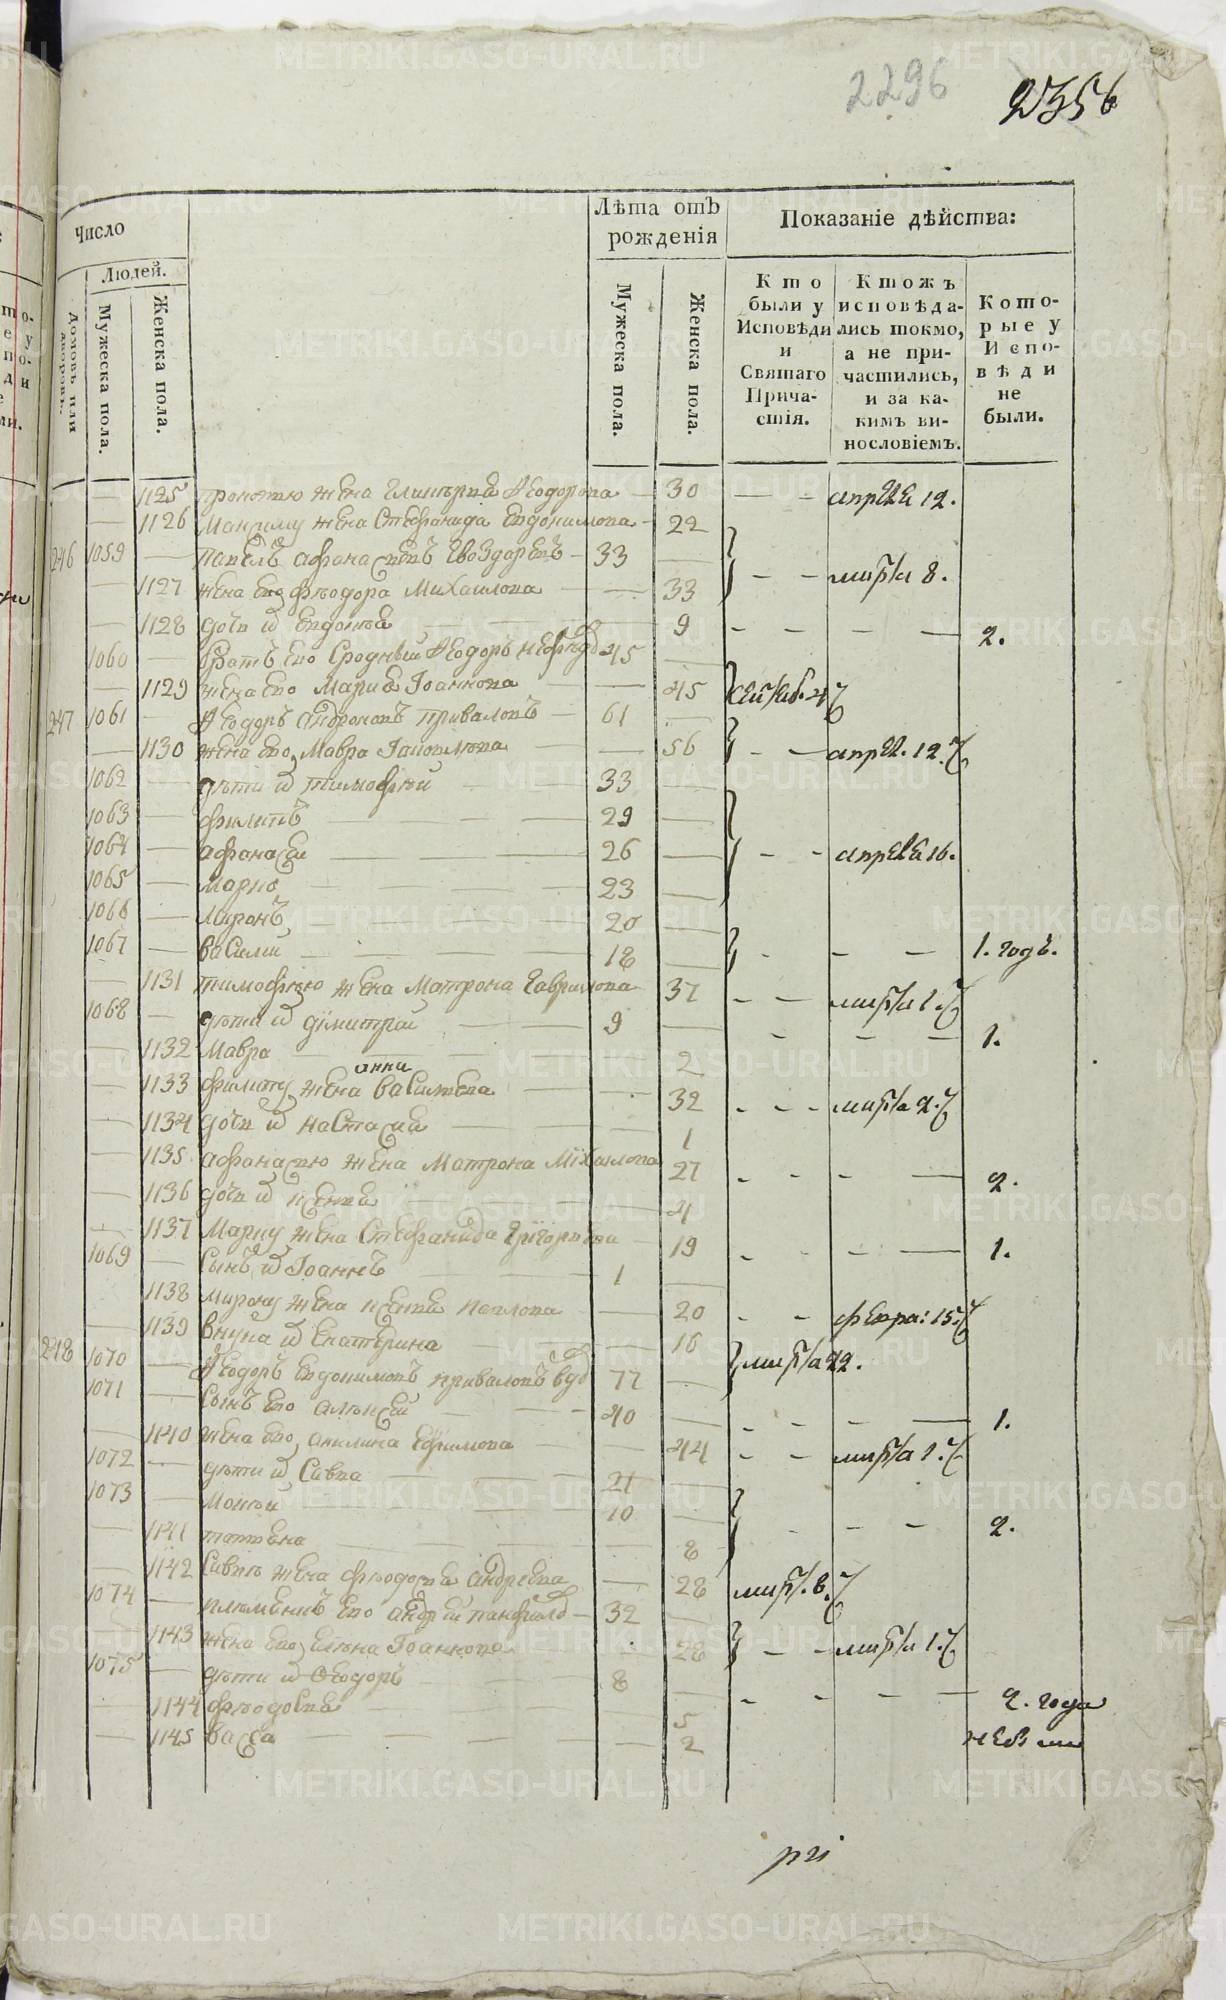 2296 2356
Число
Людей.
Домовъ или дворовъ.
Мужеска пола.
Женска пола.
Лѣта отъ рожденія
Мужеска пола.
Женска пола.
Показаніе дѣйства:
Кто были у Исповѣди и Святаго Прича-стія.
Ктожъ исповѣда-лись токмо, а не при-частились, и за ка-кимъ ви-нословіемъ.
Кото-рые у Испо-вѣди не были.
1125 жена Гликерия Ѳеодорова 30 апреля 12.
1126 Максиму жена Стефанида Евдокимова 22
246 1059 Павелъ Афанасиевъ Гвоздоревъ 33
1127 жена ево Фѣодора Михаилова 33 марта 8.
1128 дочь и Евдокия 9 2.
1060 братъ ево Сродный Ѳеодоръ 45
1129 жена ево Мария Іоаннова 45
247 1061 Ѳеодоръ Андроновъ Приваловъ 61
1130 жена ево Мавра 56 апрел. 12.
1062 дѣти и Тимофѣй 33
1063 Филипъ 29
1064 Афанасии 26 апреля 16.
1065 Марко 23
1066 Миронъ 20
1067 Василии 18 1. годъ.
1131 Тимофѣю жена Матрона Гаврилова 37 марта 1.
1068 дѣти и Димитрии 9 1.
1132 Мавра 2
1133 Филипу жена анна Василиева 32 марта 2.
1134 дочь и Настасия 1
1135 Афанасию жена Матрона Михаилова 27 2.
1136 дочь и Ксения 4
1137 Марку жена Стефанида Григориева 19 1.
1069 Сынъ и Іоаннъ 1
1138 Мирону жена Ксения Павлова 20 февра: 15.
1139 внука и Екатерина 16
248 1070 Ѳеодоръ Евдокимовъ Приваловъ вдв 77 марта 22.
1071 Сынъ ево Алѣксѣй 40 1.
1140 жена ево Акилина Ефимова 44 марта 1.
1072 дѣти и Савва 21
1073 Мокѣй 10
1141 Татиана 8 2.
1142 Саввѣ жена Фѣодосия Андреева 28 март. 8.
1074 племянникъ ево Андрей Панфилов 32
1143 жена ево Елена Іоаннова 28 марта 1.
1075 дѣти и Ѳеодоръ 8
1144 Фѣодосия 5 2. года
1145 Васса 2